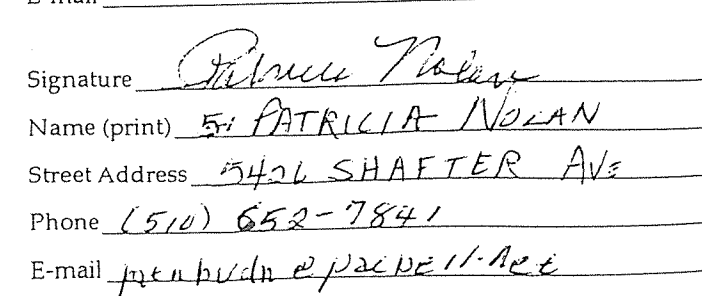 E-mail
Signature Patricia Nolan
Name (print) PATRICIA NOLAN
Street Address SHAFTER AVE
Phone (510) 652-7841
E-mail